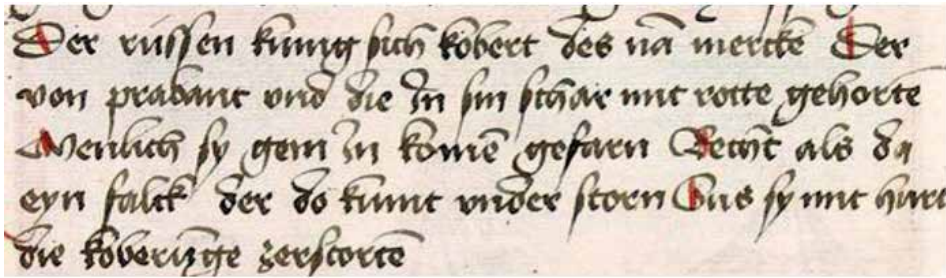 Der rüssen künig sich kobert des nā merckē Der
von prabant vnd die In sin schar mit rotte gehortē
Menlich sy gem In komē gefarn Recht als da
eyn falck der do kumt vnder storn Sus sy mit hurt
die koberūge zerstortē